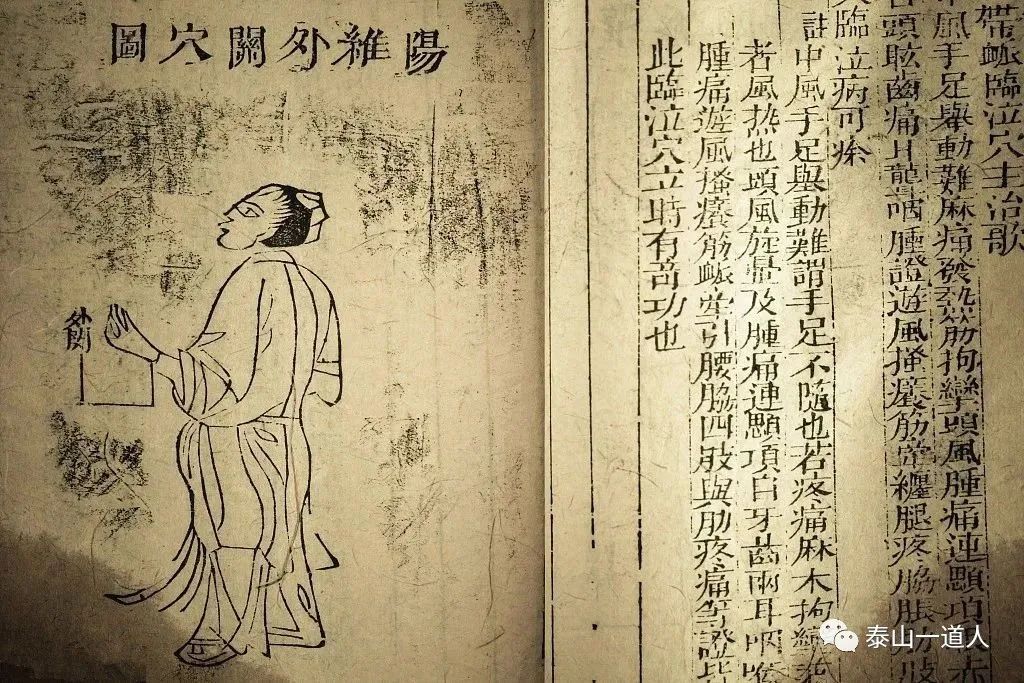 帶脈臨泣穴主治歌
中風手足舉動難麻痛發熱筋拘攣頭風腫痛連顋項赤
目頭眩齒痛耳聾咽腫證遊風搔癢筋牽纏腿疼脇脹肋肢
臨泣病可痊
註中風手足舉動難謂手足不隨也若疼痛麻木拘攣
者風热也頭風旋暈及腫痛連顋項目牙齒兩耳咽喉
腫痛遊風搔癢筋脈牽引腰脇四肢與肋疼痛等證皆
此臨泣穴立時有奇功也
陽維外關穴圖
外關
泰山一道人